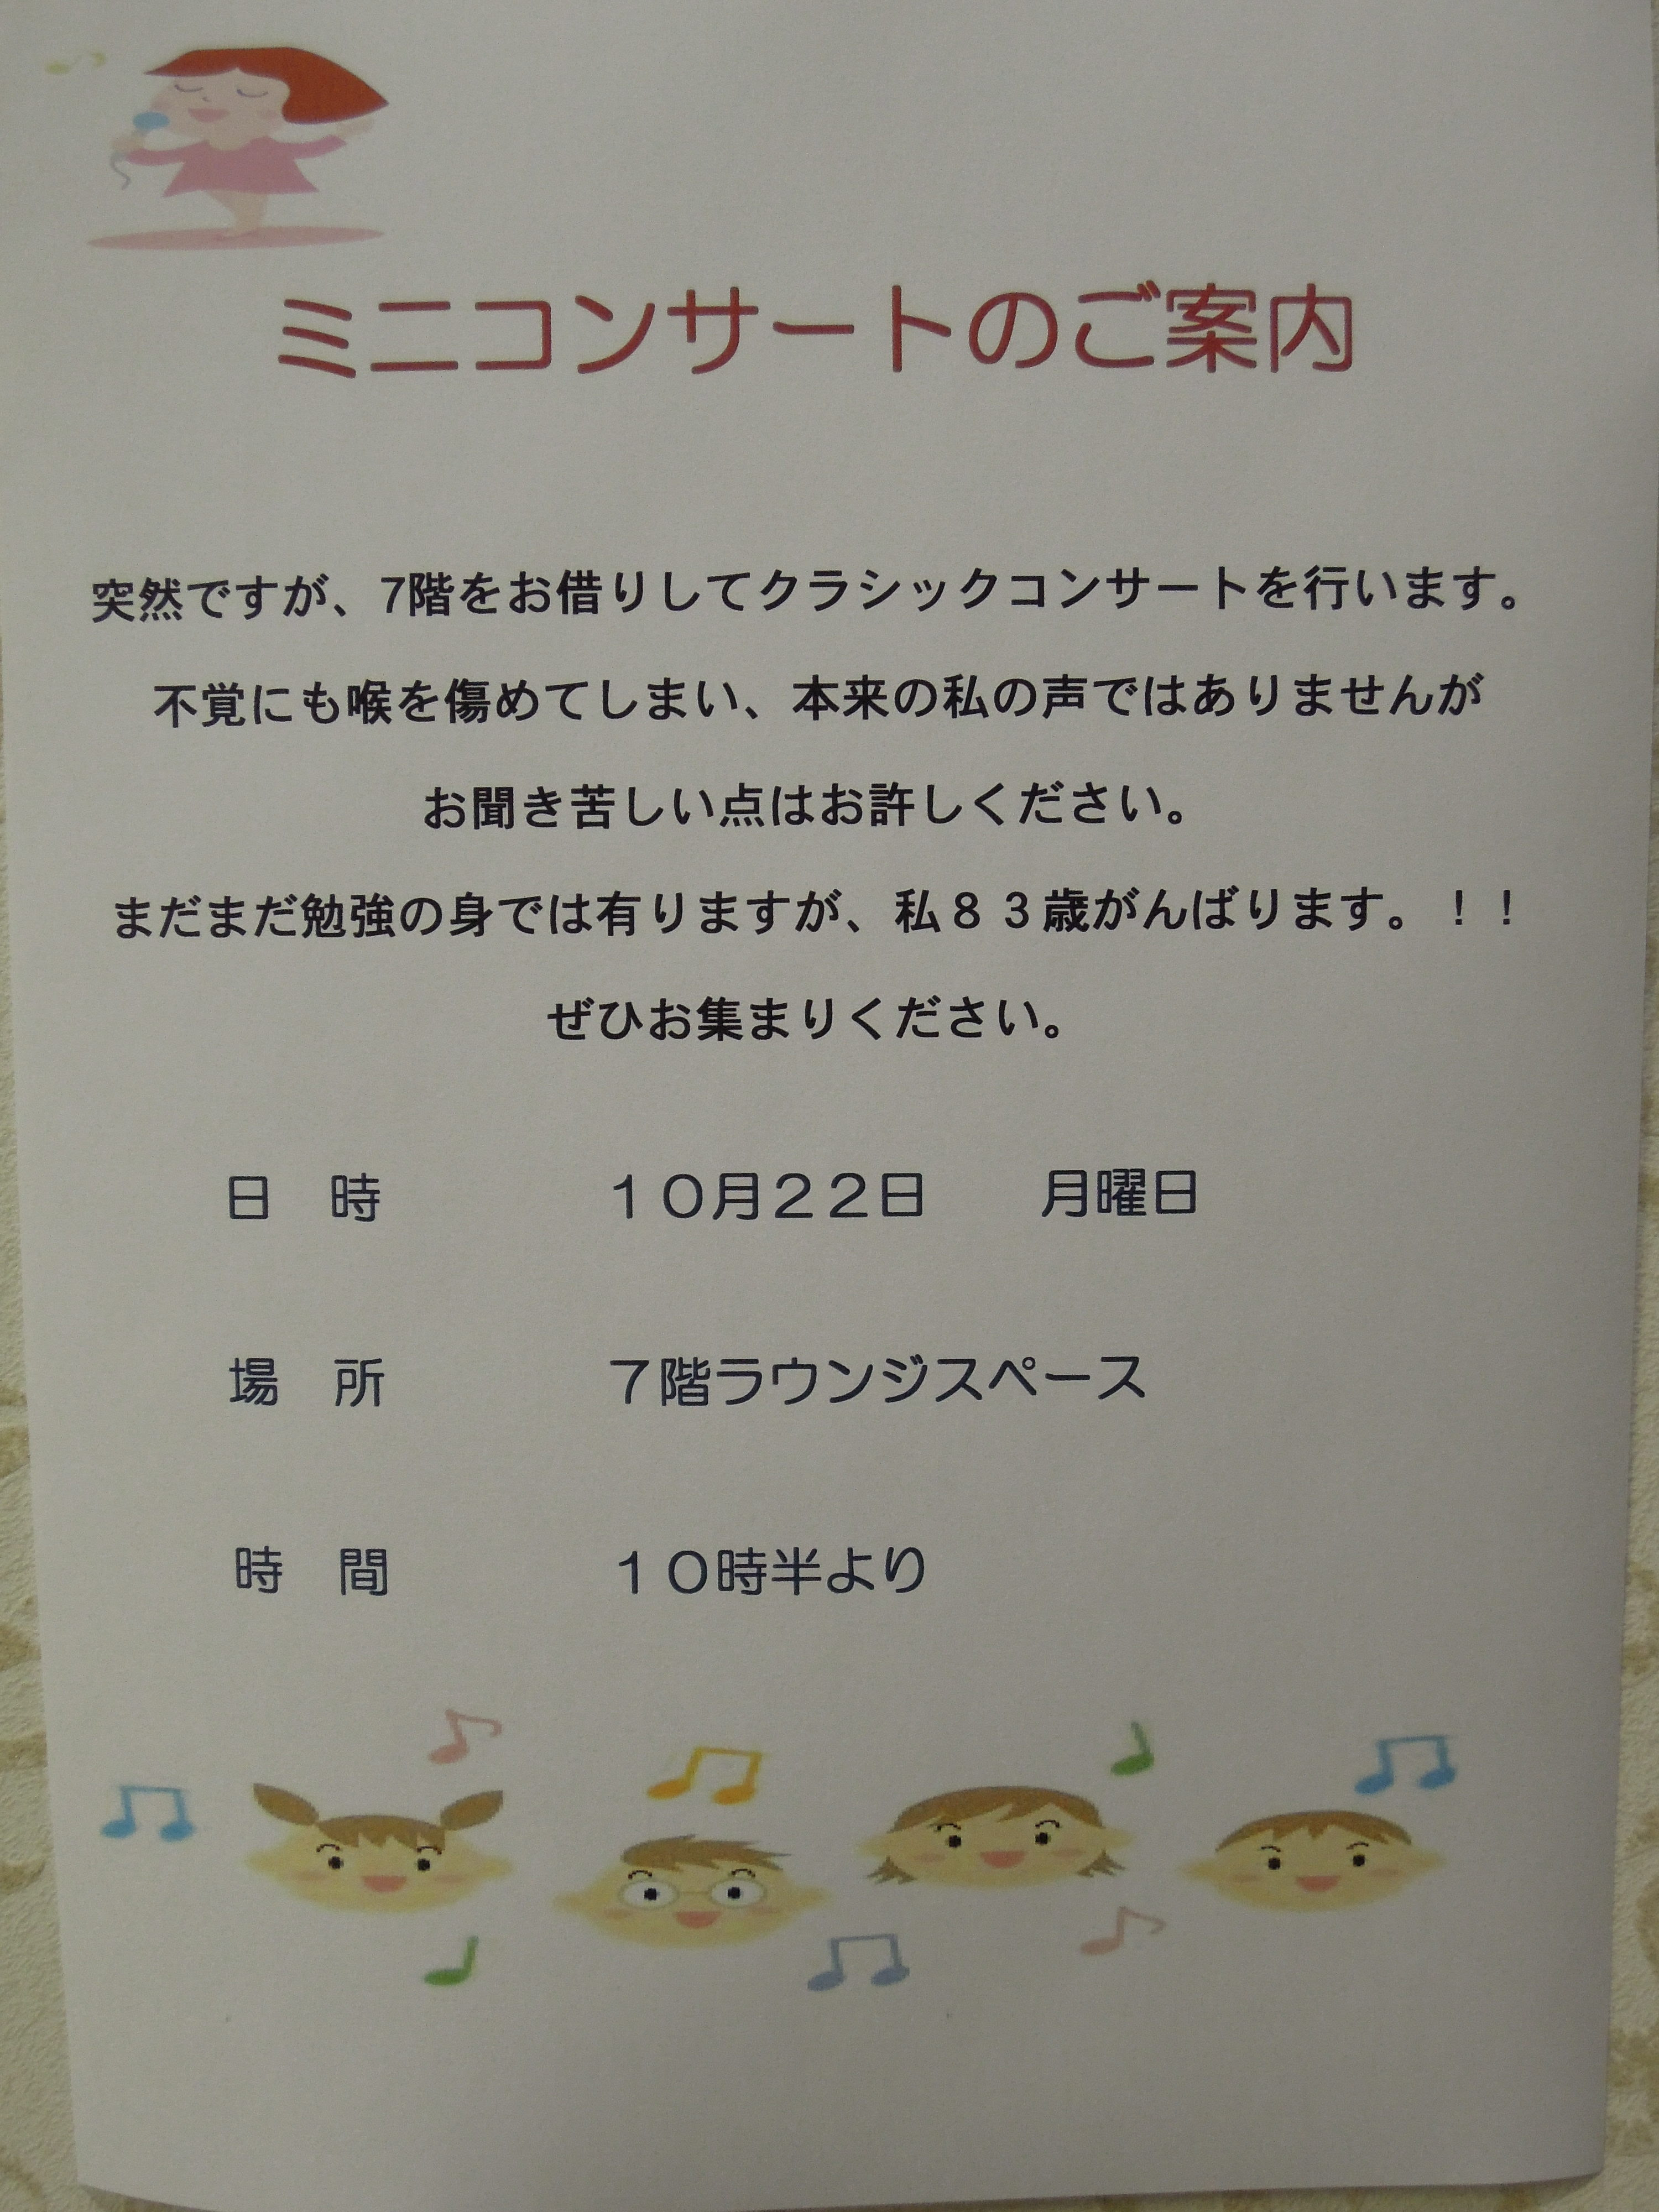 ミニコンサートのご案内
突然ですが、7階をお借りしてクラシックコンサートを行います。
不覚にも喉を傷めてしまい、本来の私の声ではありませんが
お聞き苦しい点はお許しください。
まだまだ勉強の身では有りますが、私８３歳がんばります。！！
ぜひお集まりください。
日　時　　１０月２２日　　月曜日
場　所　　７階ラウンジスペース
時　間　　１０時半より